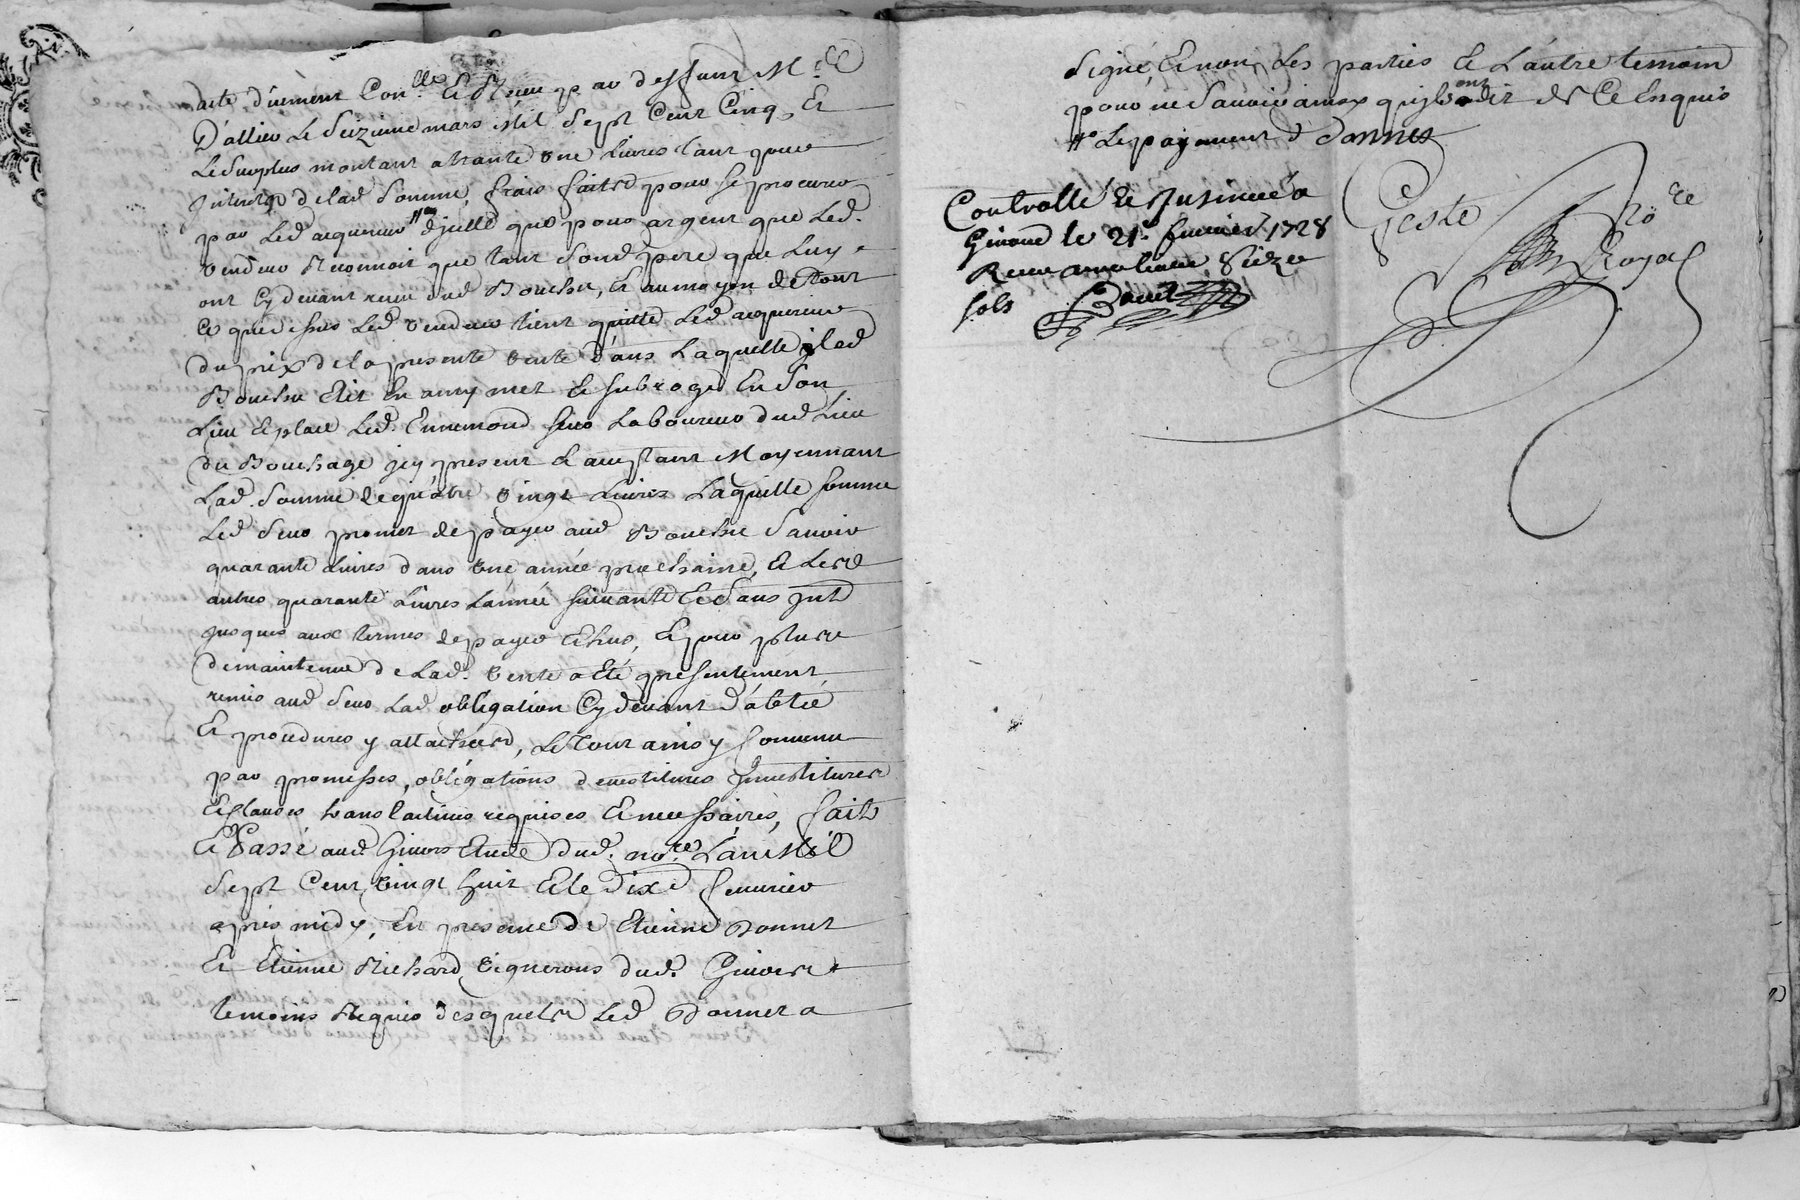 acte d'uement Con.lle & Receu par deffunt M.e
D'allieu Le Seizieme mars Mil Sept Cent Cinq, Et
Le Surplus montant a trante une Livres tant pour
Interetz de lad Somme, frais faits pour Se procurer
par Led acquereur que pour argent que Led.
vendeur Reconnoit que tant Sond pere que Luy
ont Cy devant receu dud Bouchu, Et au moyen de tout
Ce que dessus Led vendeur tient quitte Led acquereur
du prix de la presente vente dans Laquelle Led
Bouchu Elit En amy met Et Subroge En Son
Lieu Et place Led. Ennemond Laboureur dud Lieu
du Bouchage icy present Et aceptant Moyennant
Lad. Somme de quatre vingt Livres Laquelle Somme
Led promet de payer aud Bouchu Sauoir
quarante Livres dans une année prochaine, Et Les
autres quarante Livres Lannée Suivante Et Sans Int
jusques aux termes de payer Echus, Et pour plus
de maintenue de Lad. vente a Eté presentement
remis aud Lad obligation Cy devant
Et procedures y attachées, Le tout ainsy Convenu
par promesses, obligations devestitures Investitures
Et clauses translatives requises Et necessaires, fait
Et Passé aud Givors Etude dud. no.re L'an Mil
Sept Cent vingt huit Et le Dix feuurier
apres midy, En presence de Etienne Bonnet
Et Etienne Richard vignerons dud. Givors
temoins Requis desquels Led Bonnet a
Signé, Et non Les parties Et L'autre temoin
pour ne Sauoir ainsy qu'ils ont dit de Ce Enquis
Le payement
Controllé & Insinué a
Givord le 21.e feurier 1728
Receu
sols
Geste no.re
Royal